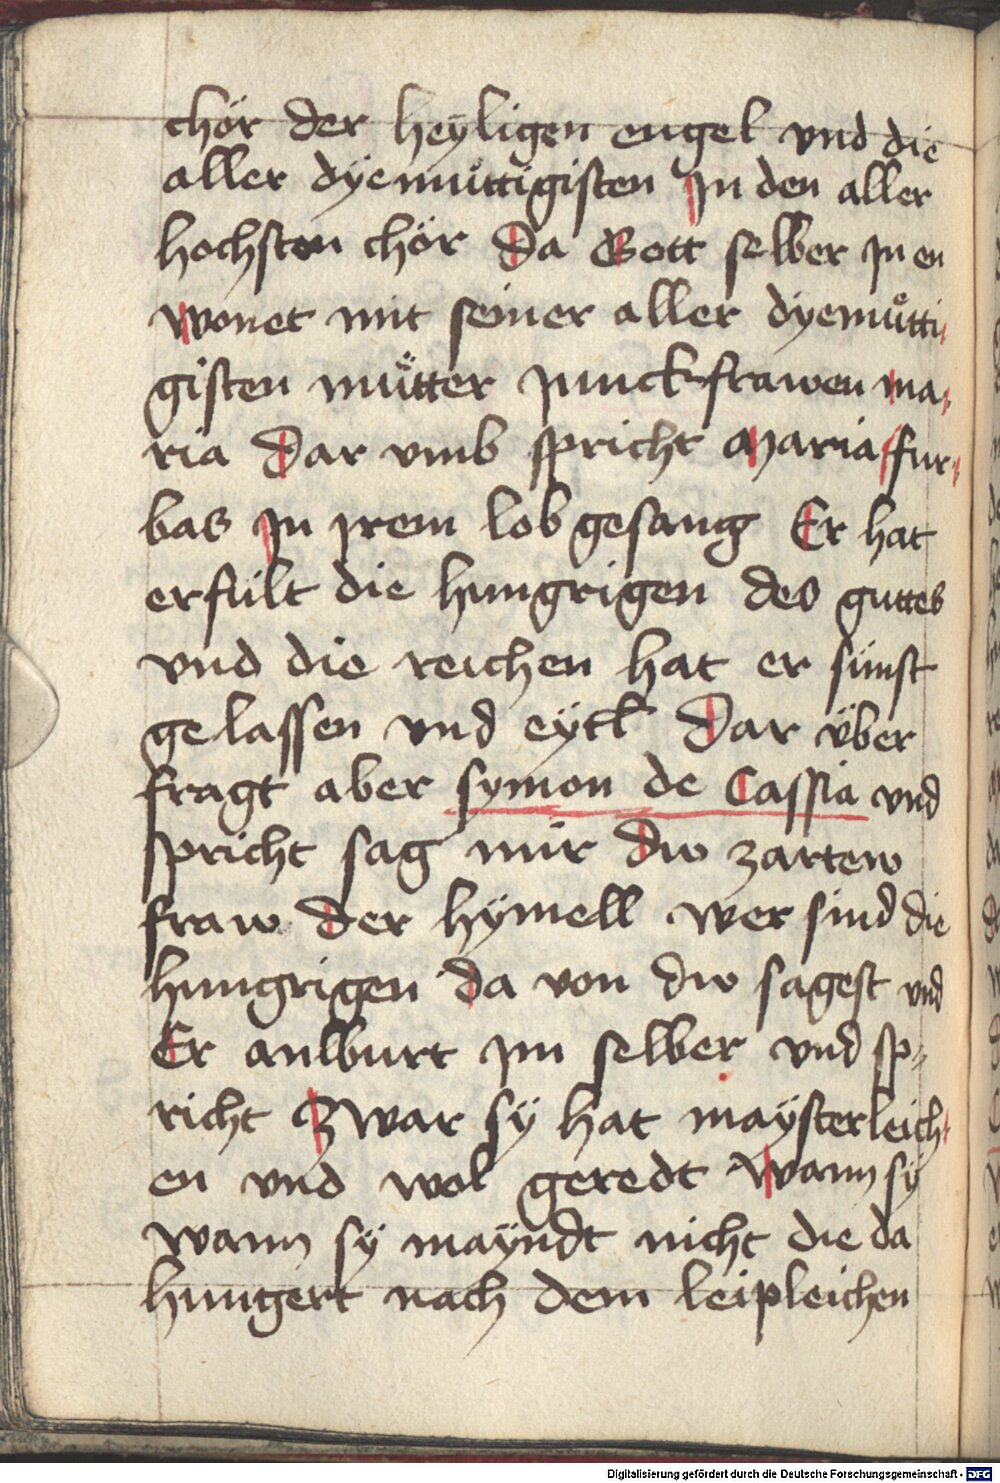 chör der heÿligen engel vnd die
aller dÿemuͤttigisten Jn den aller
hochsten chör Da Gott selber jn en
wonet mit seiner aller dÿemuͤtti
gisten muͤtter junckfrawen ma
ria Dar vmb spricht Maria fur
bas Jn jrem lobgesang Er hat
erfült die hungrigen des guttes
vnd die reichen hat er sünst
gelassen vnd eÿtl Dar über
fragt aber symon de Cassia vnd
spricht sag mir Dw zartew
fraw der hÿmell wer sind die
hungrigen da von dw sagest vnd
Er antburt jm selber vnd sp
richt Zwar sÿ hat maÿsterleich
en vnd wol geredt Wann sÿ
wann sÿ maÿndt nicht die da
hungert nach dem leipleichen
Digitalisierung gefördert durch die Deutsche Forschungsgemeinschaft - DFG